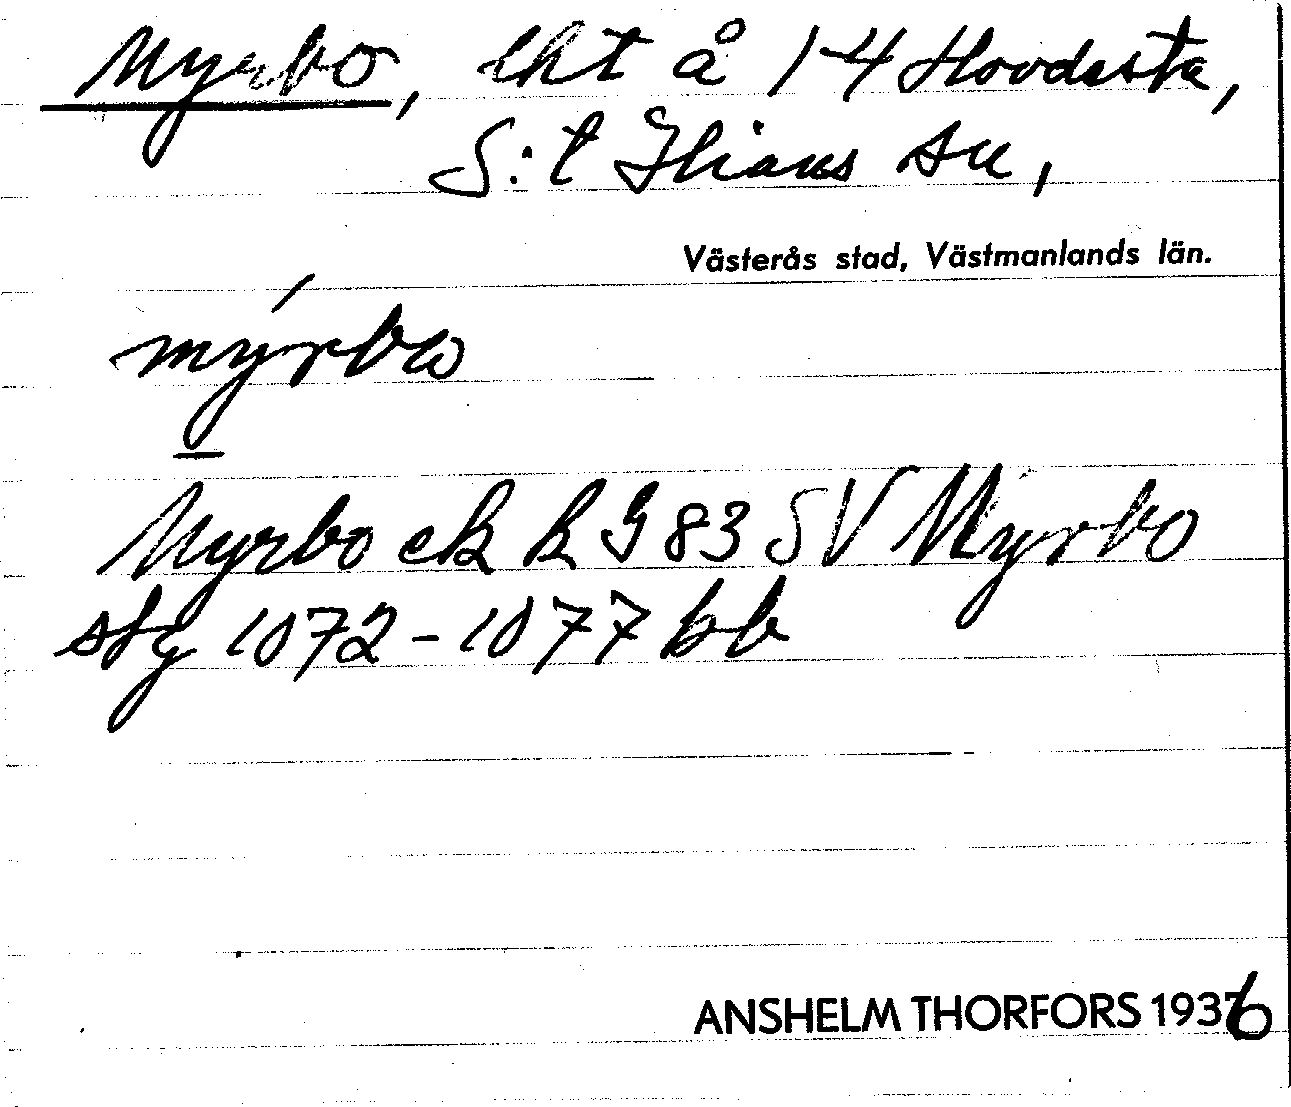 Myrbo, lht å 1-4 Hovdesta,
S:t Ilians sn,
Västerås stad, Västmanlands län.
mýrbω
Myrbo ek R G 83 SV Myrbo
stg 1072-1077 bb
ANSHELM THORFORS 1936